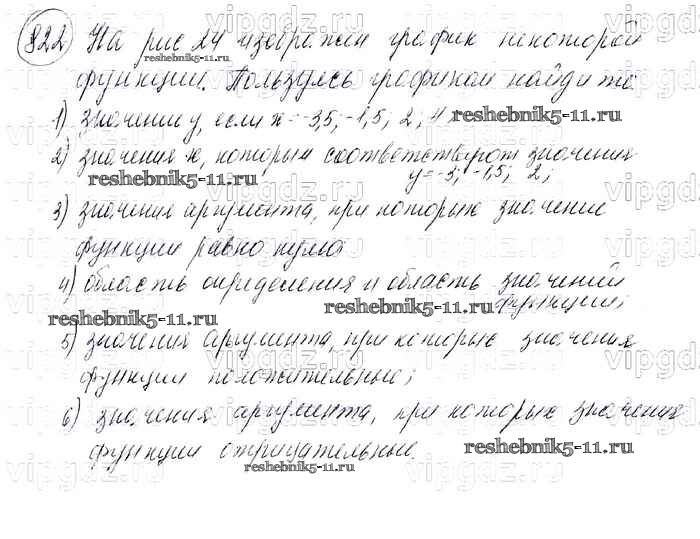 822 На рис 24 изображен график некоторой
функции. Пользуясь графиком найдите:
1) значении y, если x = -3,5; -1,5; 2; 4
reshebnik5-11.ru
2) значения x, которым соответствуют значения
y = -3; -1,5; 2;
reshebnik5-11.ru
3) значения аргумента, при которых значение
функции равно нулю
4) область определения и область значений
функции;
reshebnik5-11.ru
reshebnik5-11.ru
5) значения аргумента, при которых значения
функции положительные;
6) значения аргумента, при которых значения
функции отрицательные.
reshebnik5-11.ru
reshebnik5-11.ru